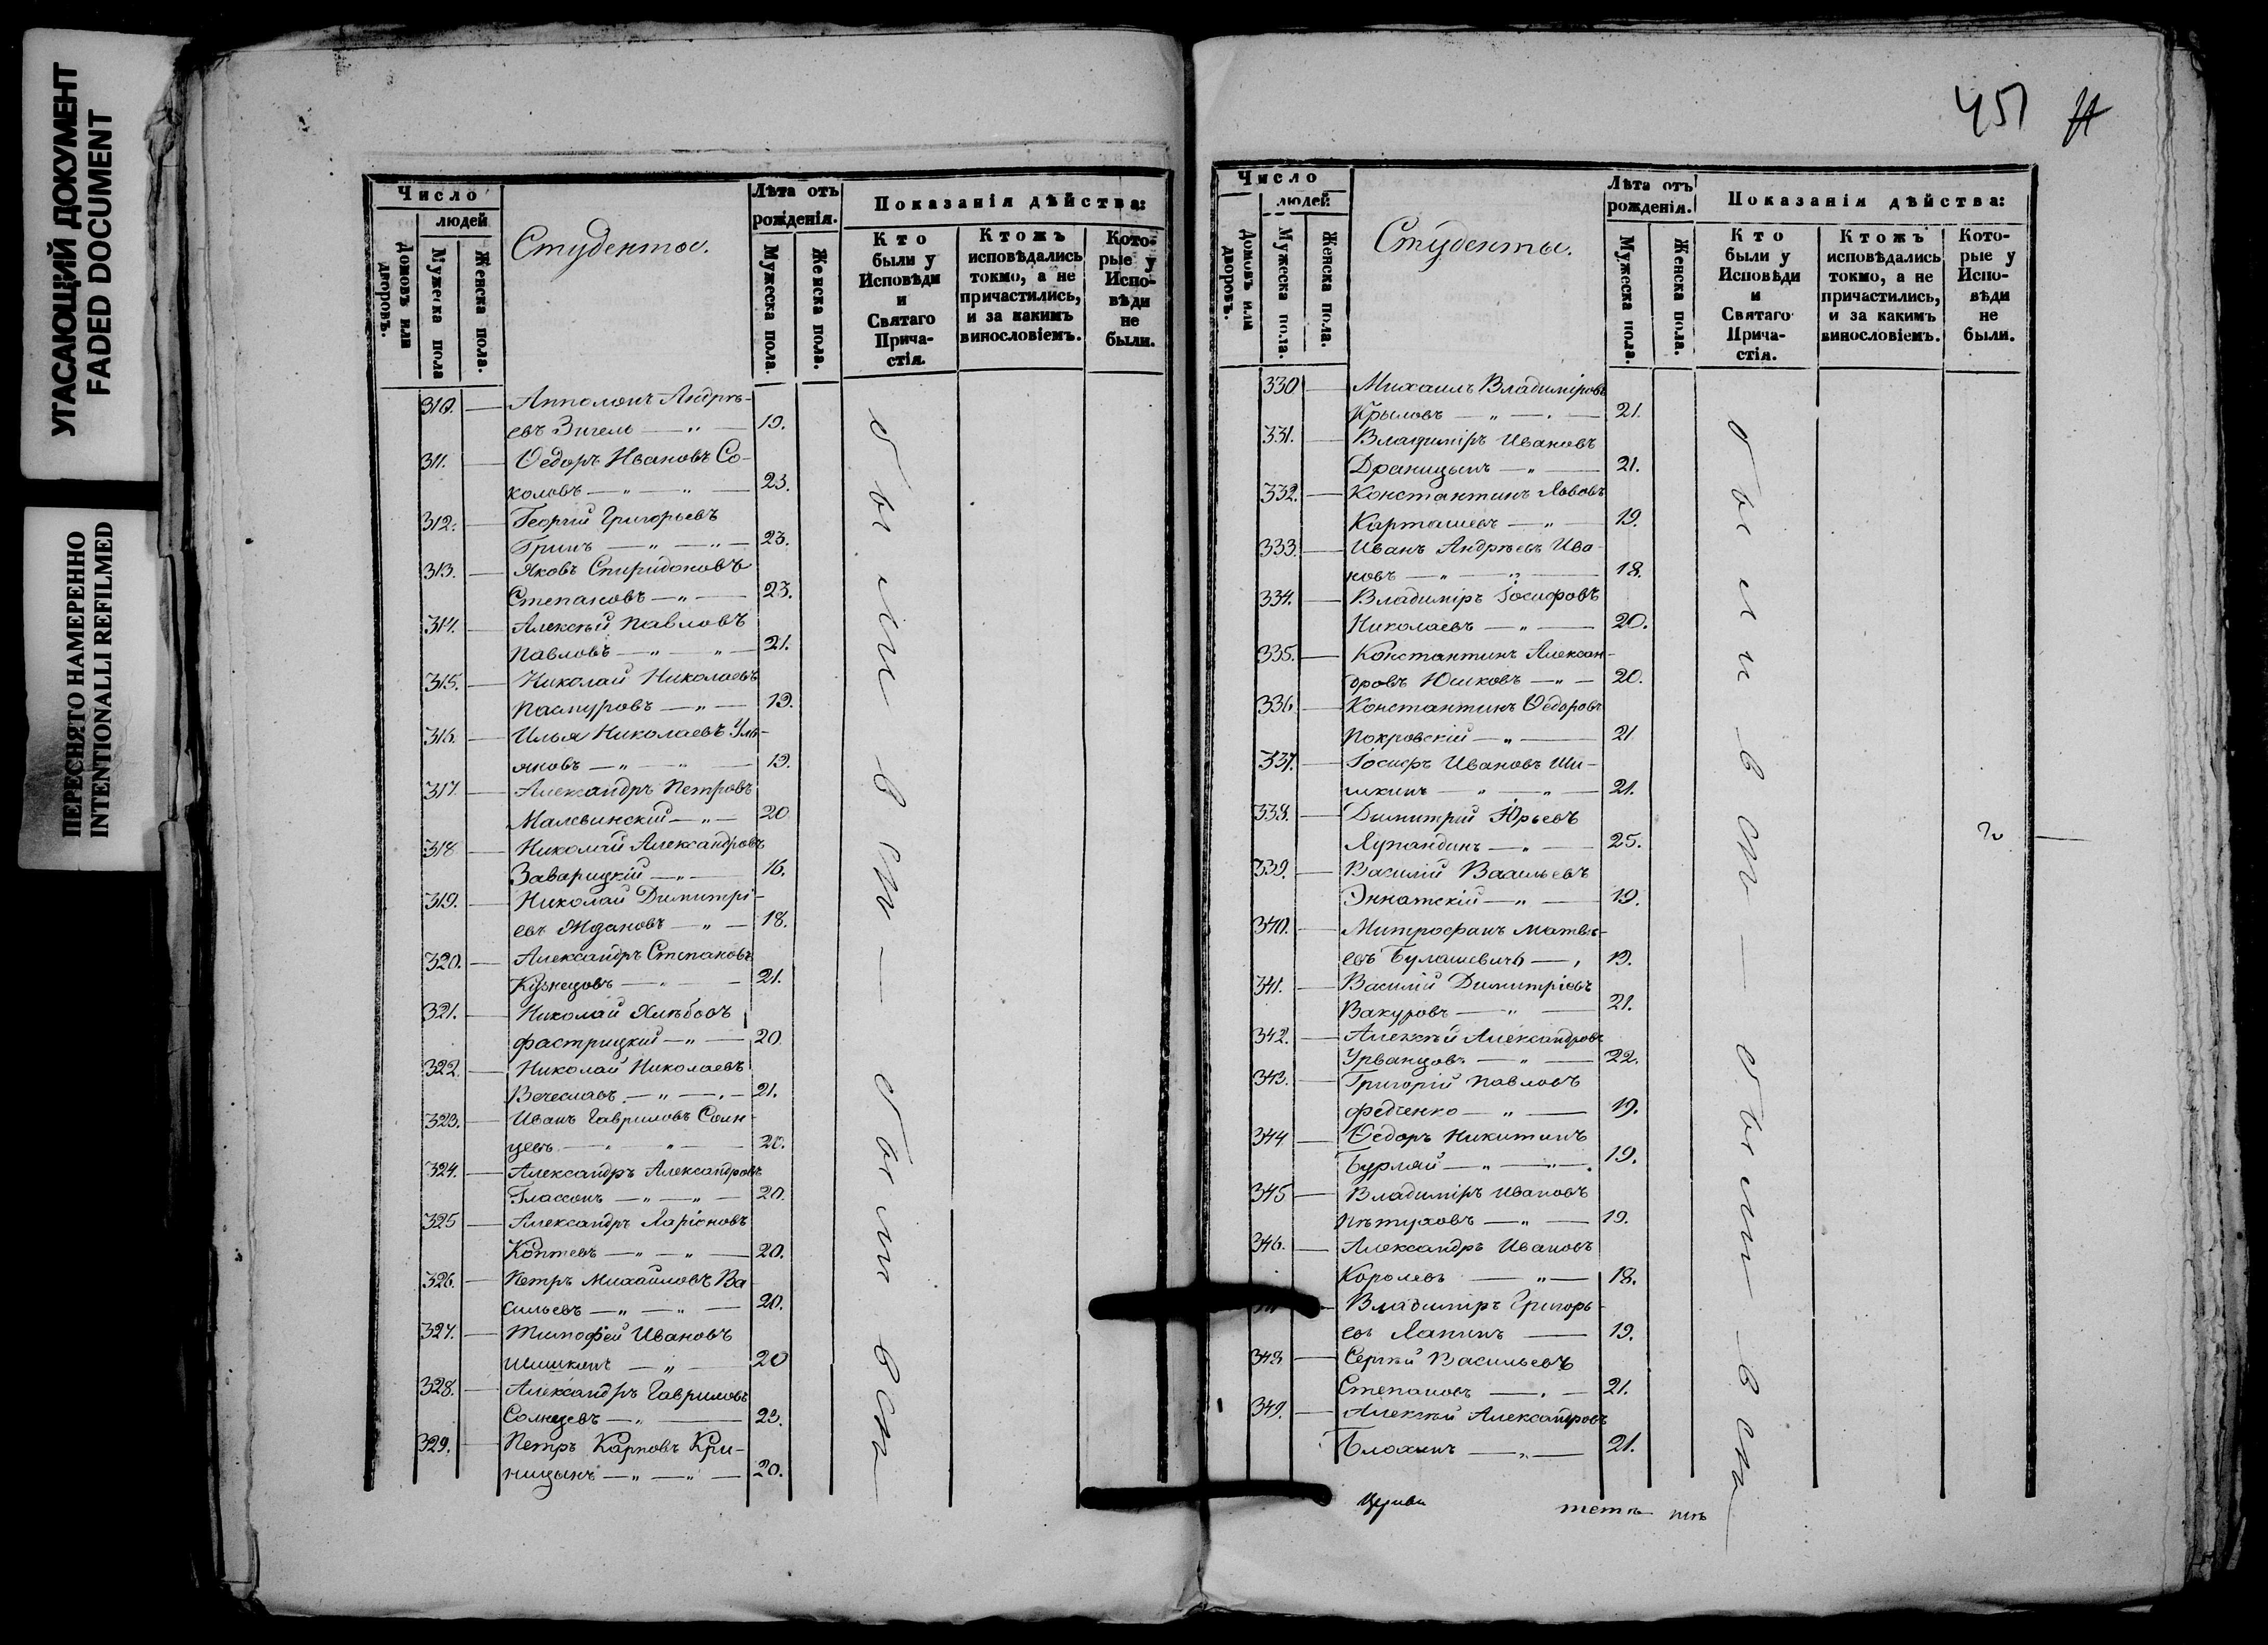 УГАСАЮЩИЙ ДОКУМЕНТ
FADED DOCUMENT
ПЕРЕСНЯТО НАМЕРЕННО
INTENTIONALLI REFILMED
Число
людей
Домовъ или дворовъ.
Мужеска пола
Женска пола.
Студенты.
Лѣта отъ рожденія.
Мужеска пола.
Женска пола.
Показанія дѣйства:
Кто были у Исповѣди и Святаго Прича-стія.
Ктожъ исповѣдались токмо, а не причастились, и за какимъ винословіемъ.
Кото-рые у Испо-вѣди не были.
310. Апполонъ Андрѣ-
евъ Зигель 19.
311. Ѳедоръ Ивановъ Со-
коловъ 23.
312. Георгій Григорьевъ
Гринъ 23.
313. Яковъ Спиридоновъ
Степановъ 23.
314. Алексѣй Павловъ
Павловъ 21.
315. Николай Николаевъ
Пасмуровъ 19.
316. Илья Николаевъ Уль-
яновъ 19.
317. Александръ Петровъ
Малевинскій 20
318 Николай Александровъ
Заварицкій 16.
319. Николай Димитрі-
евъ Ждановъ 18.
320. Александръ Степановъ
Кузнецовъ 21.
321. Николай Хлѣбовъ
Фастрицкій 20
322 Николай Николаевъ
Вечеславъ 21.
323. Иванъ Гавриловъ Солн-
цевъ 20.
324. Александръ Александровъ
Глассонъ 20.
325 Александръ Ларіоновъ
Коптевъ 20.
326. Петръ Михайловъ Ва
сильевъ 20.
327. Тимофей Ивановъ
Шишкинъ 20
328. Александръ Гавриловъ
Солнцевъ 23.
329. Петръ Карповъ Кри-
ницынъ 20.
были въ ст — были въ ст
451
Число
людей
Домовъ или дворовъ.
Мужеска пола.
Женска пола.
Студенты.
Лѣта отъ рожденія.
Мужеска пола.
Женска пола.
Показанія дѣйства:
Кто были у Исповѣди и Святаго Прича-стія.
Ктожъ исповѣдались токмо, а не причастились, и за какимъ винословіемъ.
Кото-рые у Испо-вѣди не были.
330 Михаилъ Владиміровъ
Крыловъ 21.
331. Владиміръ Ивановъ
Драницынъ 21.
332. Константинъ Львовъ
Карташевъ 19.
333. Иванъ Андреевъ Ива-
новъ 18.
334. Владиміръ Іосифовъ
Николаевъ 20.
335. Константинъ Алексан-
дровъ Юшковъ 20.
336 Константинъ Ѳедоровъ
Покровскій 21
337. Іосифъ Ивановъ Ши-
шкинъ 21.
338. Димитрій Юрьевъ
Лупандинъ 25.
339. Василій Васильевъ
Эннатскій 19.
340. Митрофанъ Матвѣ-
евъ Булашевичъ 19.
341. Василій Димитріевъ
Вакуровъ 21.
342. Алексѣй Александровъ
Урванцовъ 22.
343. Григорій Павловъ
Федченко 19.
344 Ѳедоръ Никитинъ
Бурлай 19.
345 Владиміръ Ивановъ
Пѣтуховъ 19.
346. Александръ Ивановъ
Королевъ 18.
Владиміръ Григорь-
евъ Лапинъ 19.
348 Сергѣй Васильевъ
Степановъ 21.
349. Алексѣй Александровъ
Блохинъ 21.